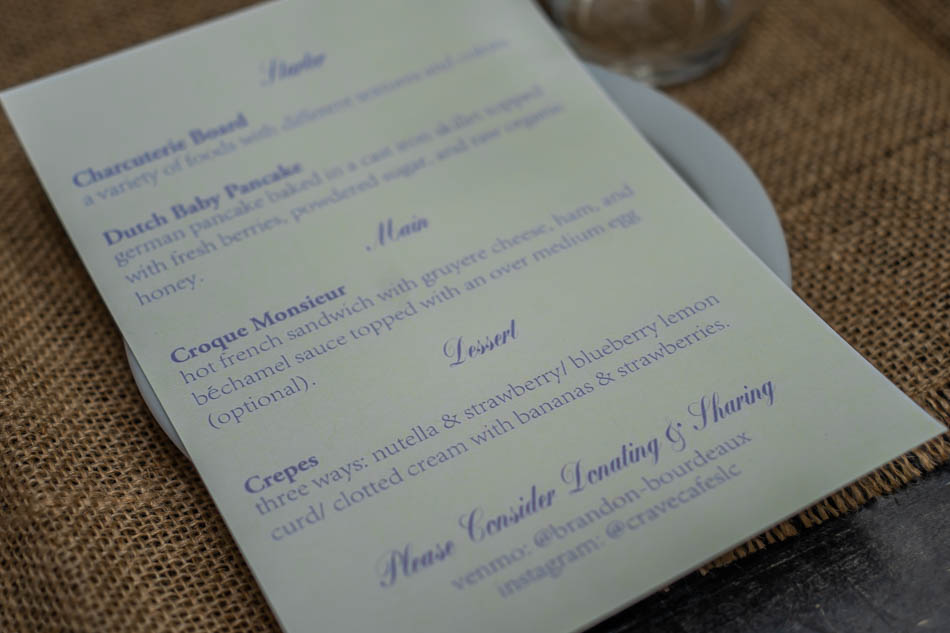 Charcuterie Board
a variety of foods with different textures and colors.
Dutch Baby Pancake
german pancake baked in a cast iron skillet topped
with fresh berries, powdered sugar, and raw organic
honey.
Main
Croque Monsieur
hot french sandwich with gruyere cheese, ham, and
béchamel sauce topped with an over medium egg
(optional).
Dessert
Crepes
three ways: nutella & strawberry/ blueberry lemon
curd/ clotted cream with bananas & strawberries.
Please Consider Donating & Sharing
venmo: @brandon-bourdeaux
instagram: @cravecafeslc